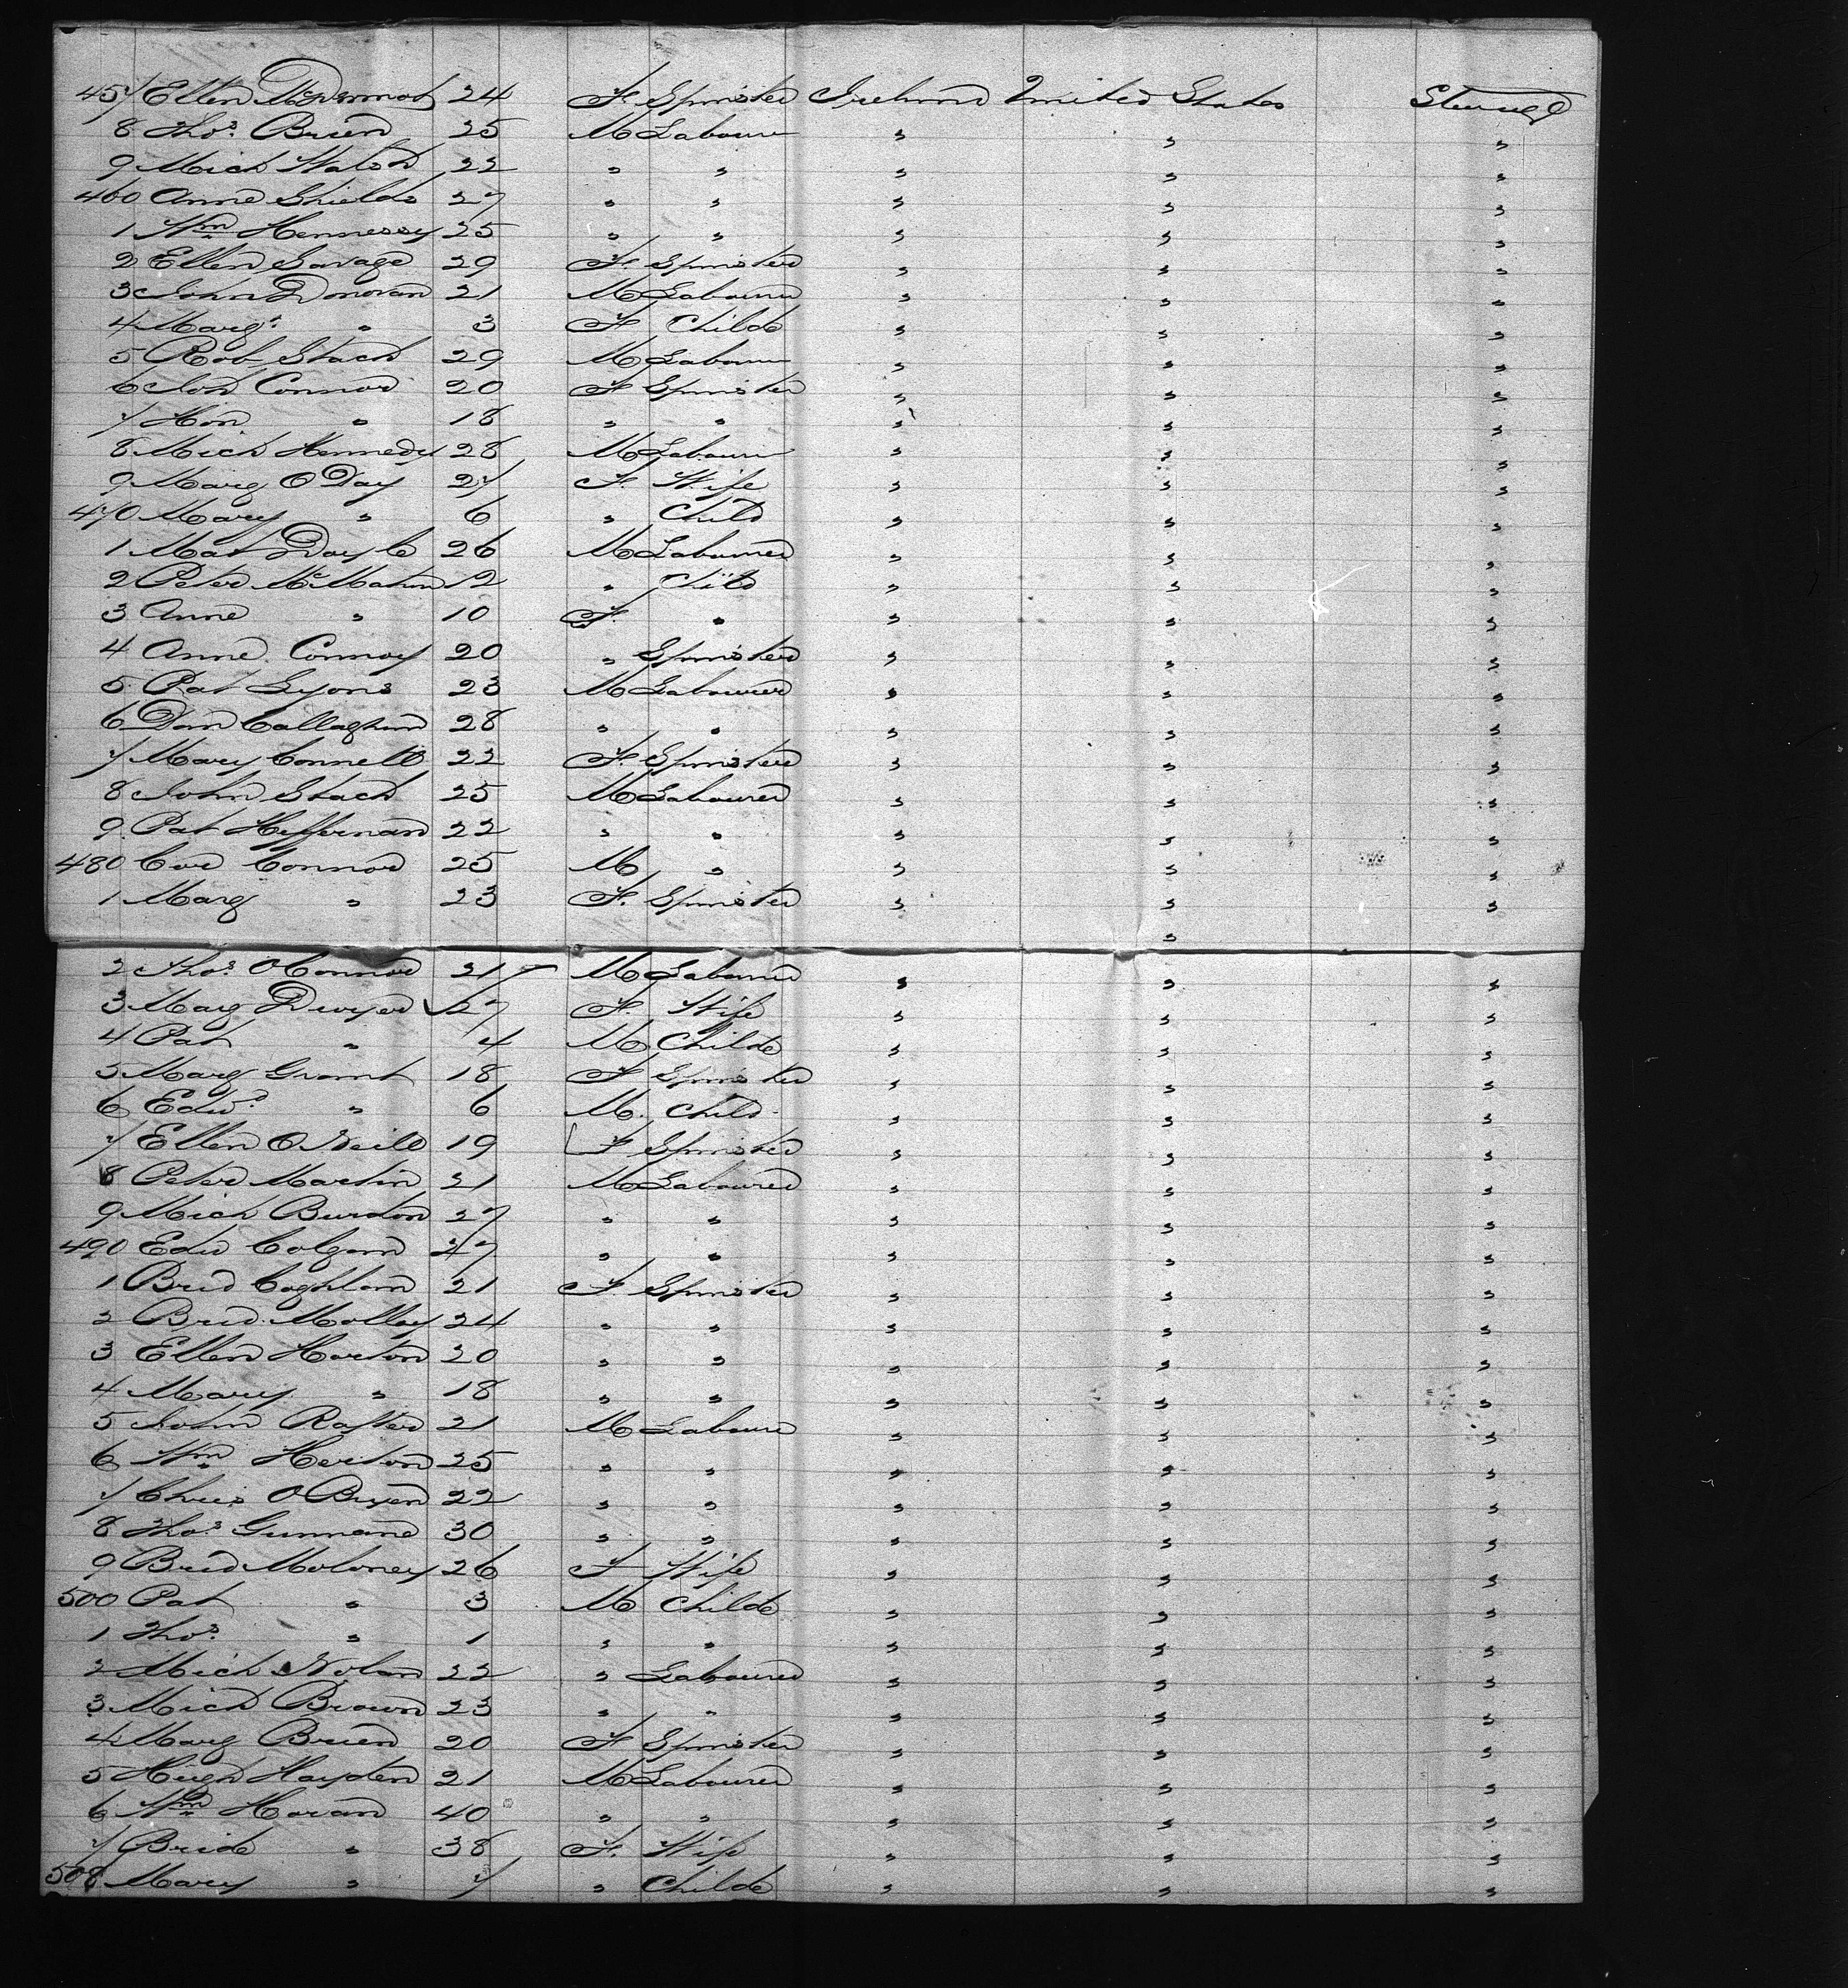 457 Ellen McDermot 24 F. Spinster Ireland United States Steerage
8 Thos. Brien 25 M Labourer " " "
9 Mich Walsh 22 " " " " "
460 Anne Shields 27 " " " " "
1 Wm Hennessy 25 " " " " "
2 Ellen Savage 29 F. Spinster " " "
3 John Donovan 21 M Labourer " " "
4 Margt. " 3 F Child " " "
5 Rob Stack 29 M Labourer " " "
6 Joh Connor 20 F Spinster " " "
7 Hon " 18 " " " " "
8 Mich Kennedy 28 M Labourer " " "
9 Marg O Day 27 F. Wife " " "
470 Mary " 6 " Child " " "
1 Mat Doyle 26 M Labourer " " "
2 Peter McMahon 12 " Child " " "
3 Anne " 10 F. " " " "
4 Anne Connoy 20 " Spinster " " "
5 Pat Lyons 23 M Labourer " " "
6 Dan Callaghan 28 " " " " "
7 Mary Connell 22 F. Spinster " " "
8 John Stack 25 M Labourer " " "
9 Pat Heffernan 22 " " " " "
480 Cor Connor 25 M " " " "
1 Marg " 23 F. Spinster " " "
"
2 Thos. O Connor 21 M Labourer " " "
3 Marg Dwyer 27 F. Wife " " "
4 Pat " 4 M Child " " "
5 Marg Grant 18 F Spinster " " "
6 Edwd. " 6 M. Child " " "
7 Ellen O Neill 19 F Spinster " " "
8 Peter Martin 21 M Labourer " " "
9 Mich Burdon 27 " " " " "
490 Edw Colgan 27 " " " " "
1 Brid Coghlan 21 F Spinster " " "
2 Brid. Molloy 24 " " " " "
3 Ellen Horton 20 " " " " "
4 Mary " 18 " " " " "
5 John Rafter 21 M Labourer " " "
6 Wm Horton 25 " " " " "
7 Chris O Bryen 22 " " " " "
8 Thos. Gunnane 30 " " " " "
9 Brid Moloney 26 F Wife " " "
500 Pat " 3 M Child " " "
1 Thos. " 1 " " " " "
2 Mich Nolan 22 " Labourer " " "
3 Mich Brown 23 " " " " "
4 Marg Brien 20 F Spinster " " "
5 Hugh Hayden 21 M Labourer " " "
6 Wm Horan 40 " " " " "
7 Brid " 38 F. Wife " " "
508 Mary " 7 " Child " " "